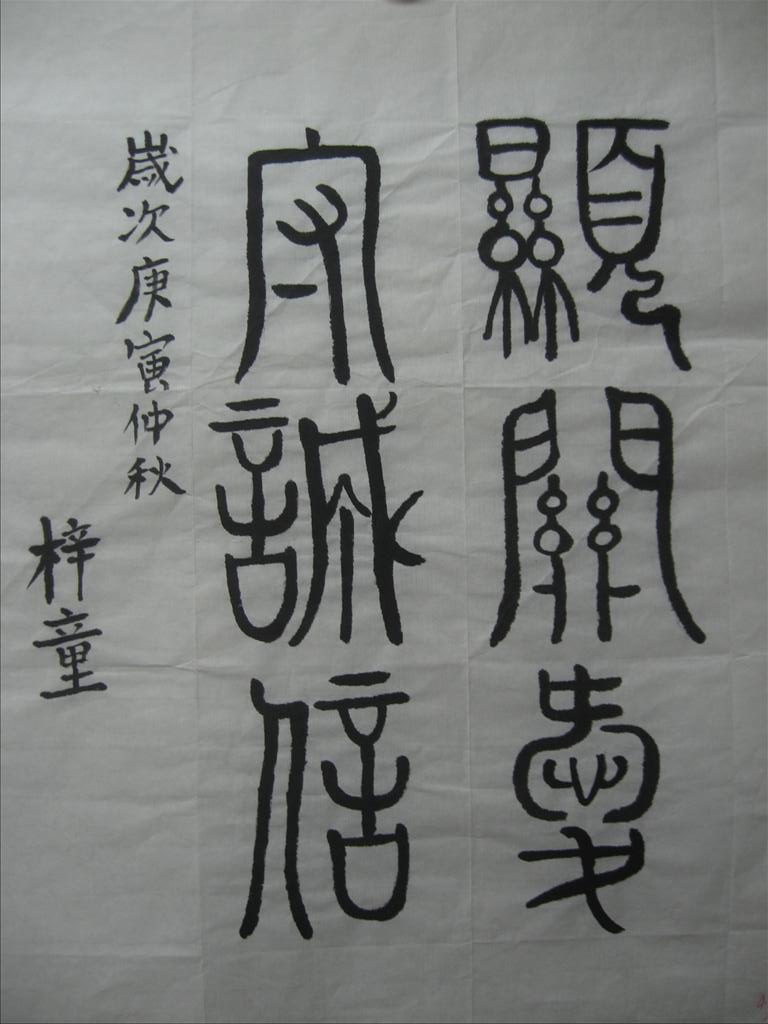 顯關愛
守誠信
歲次庚寅仲秋
梓童